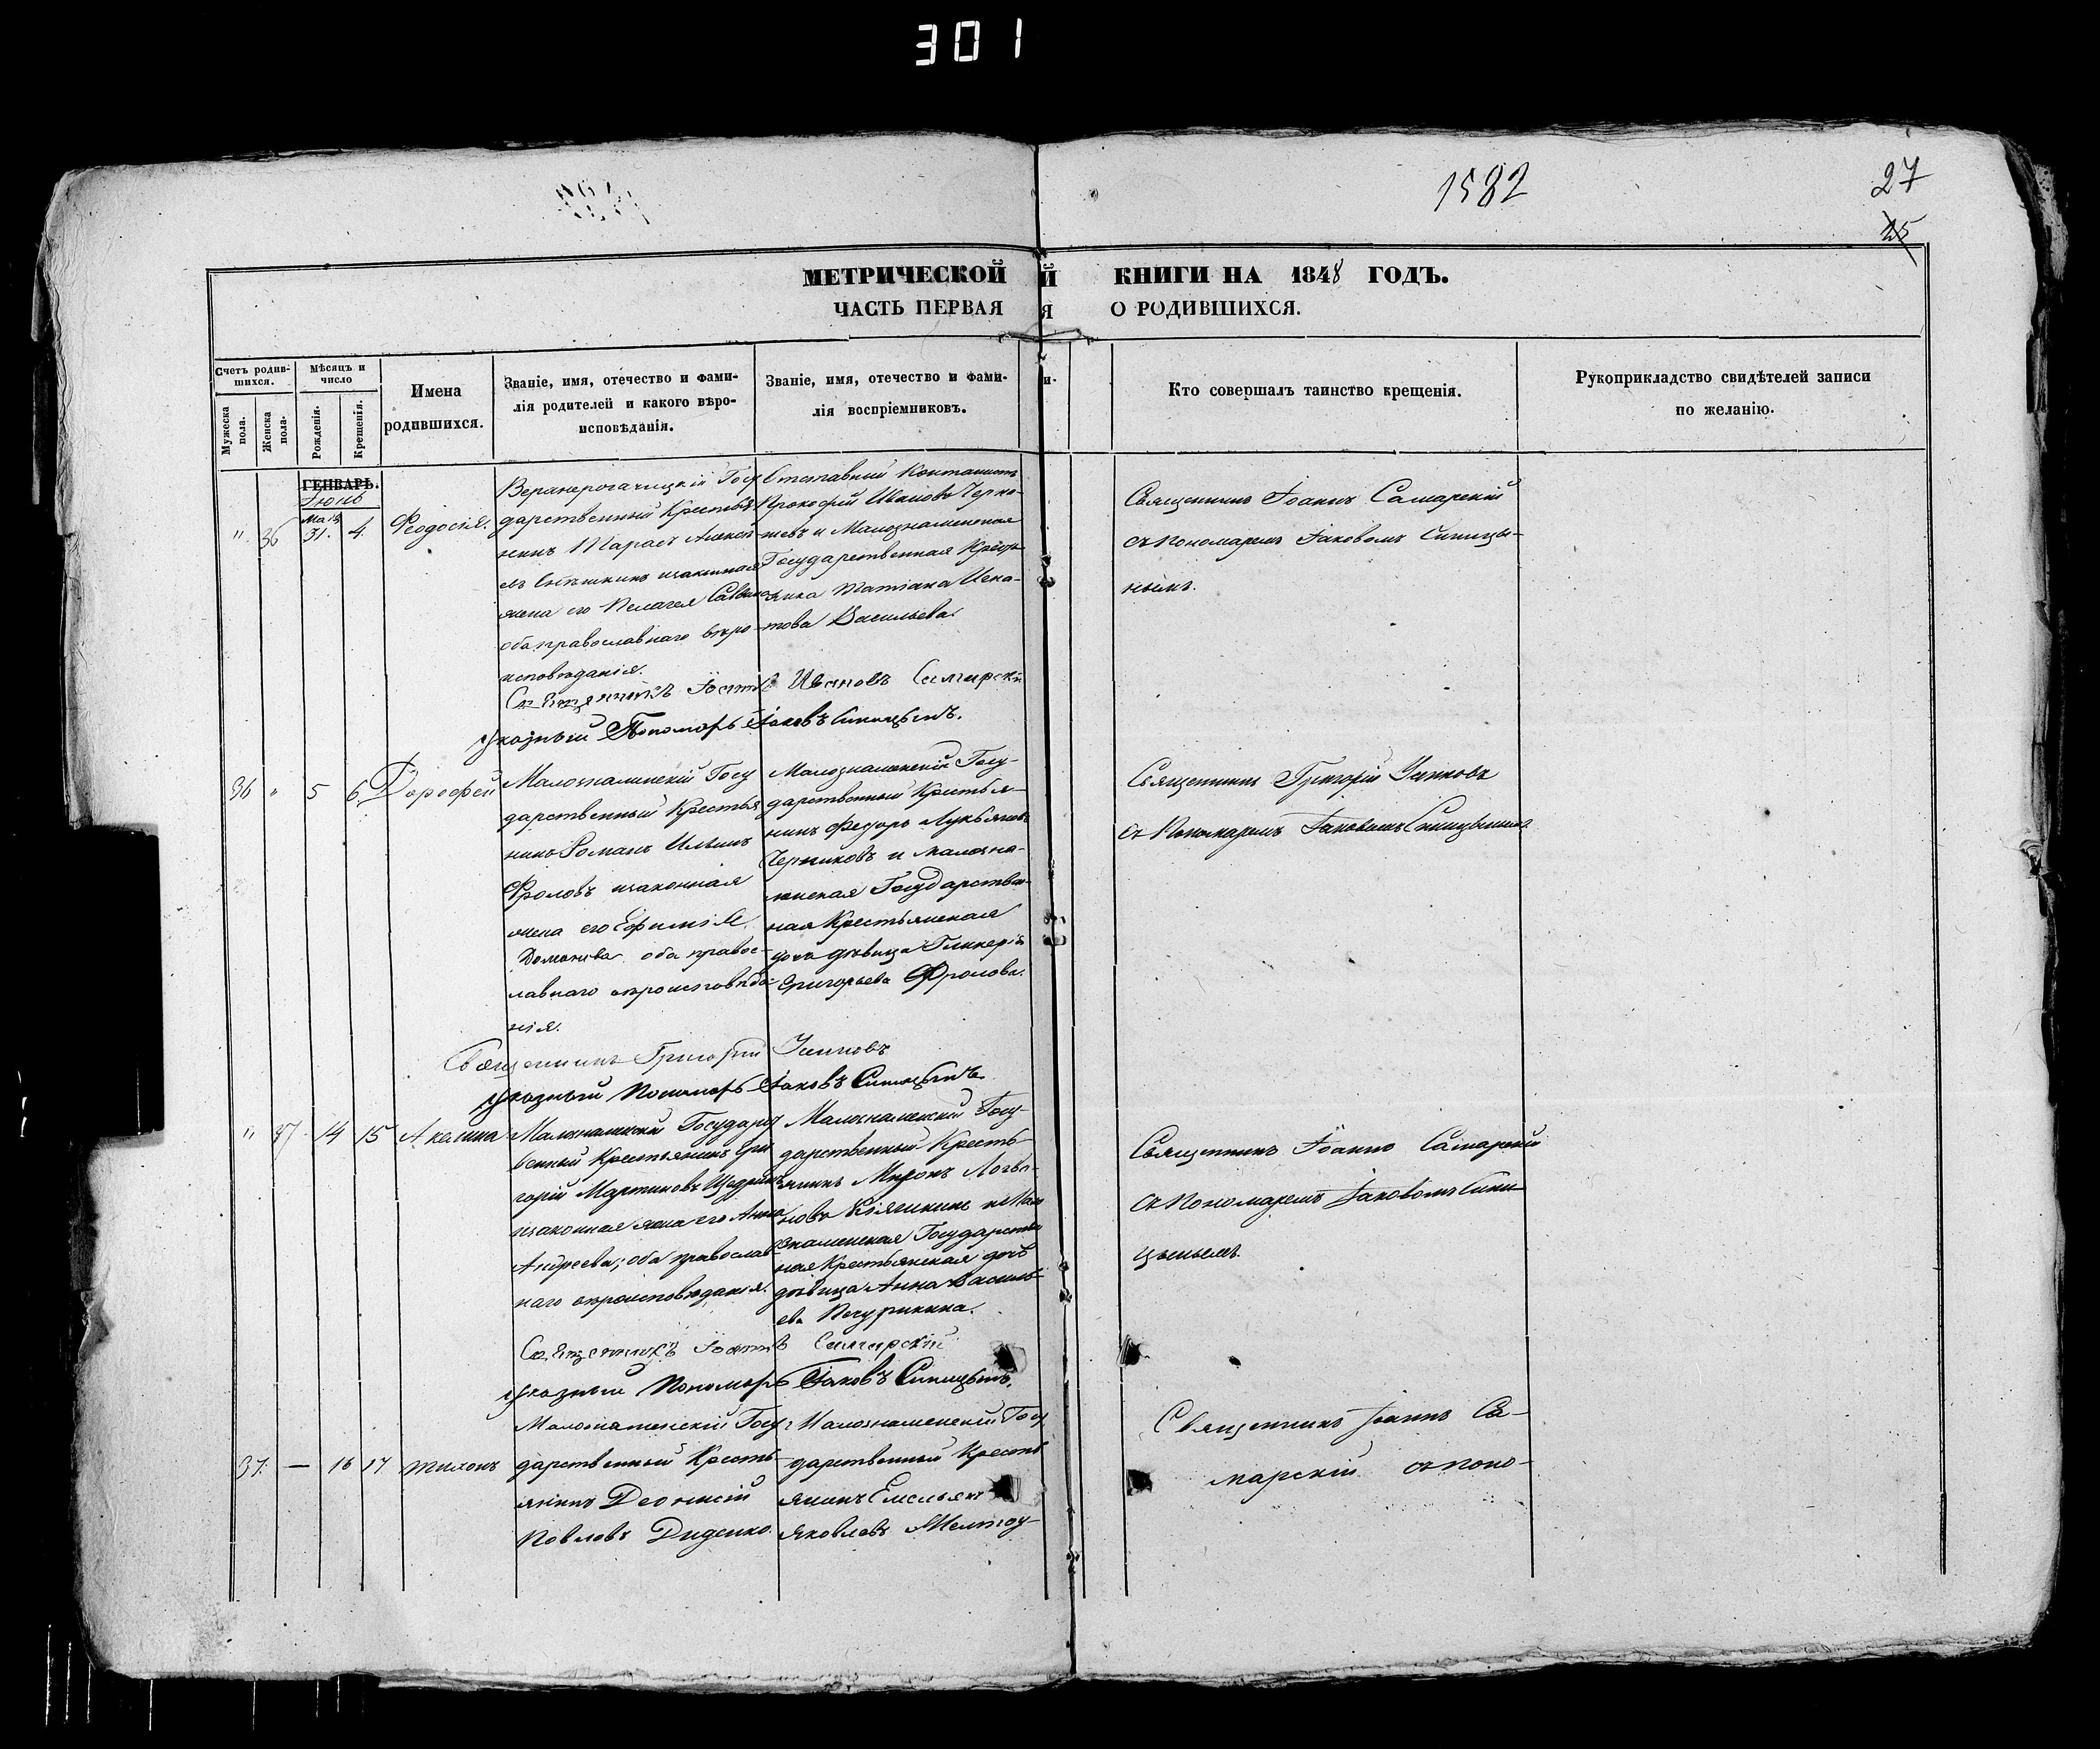 301
1582
27
25
МЕТРИЧЕСКОЙ Й КНИГИ НА 1848 ГОДЪ.
ЧАСТЬ ПЕРВАЯ Я О РОДИВШИХСЯ.
Счетъ родив-
шихся.
Мужеска
пола.
Женска
пола.
Мѣсяцъ и
число
Рожденія.
Крещенія.
Имена
родившихся.
Званіе, имя, отечество и фами-
лія родителей и какого вѣро-
исповѣданія.
Званіе, имя, отечество и фами-
лія воспріемниковъ.
и-
Кто совершалъ таинство крещенія.
Рукоприкладство свидѣтелей записи
по желанію.
ГЕНВАРЬ.
Іюнь
" 36 Мая 31. 4. Феодосія.
Верхнерогачицкій Госу
дарственный Крестья
нинъ Тарасъ Алексѣ
евъ изаконная
жена его Пелагея Саввина
оба православнаго вѣро-
исповѣданія.
Отставный
Прокофій Черко-
шевъ и Малознаменская
Государственная Крестья
нка Татіана Игна-
това Васильева.
Священникъ Іоаннъ Самарскій
съ Пономаремъ Іаковомъ Синицы-
нымъ.
Священникъ Іоаннъ Ивановъ Самарскій
указный Пономарь Іаковъ Синицынъ.
36 " 5 6. Дорофей
Малознаменскій Госу
дарственный Крестья
нинъ Романъ Ильинъ
Фроловъ изаконная
жена его Ефимія
Доманова оба правос-
лавнаго вѣроисповѣда-
нія.
Малознаменскій Госу-
дарственный Крестья-
нинъ Федоръ Лукьяновъ
Черниковъ и малозна-
менская Государствен-
ная Крестьянская
дочь дѣвица Гликерія
Григорьева Фролова.
Священникъ Григорій
съ Пономаремъ Іаковомъ Синицынымъ.
Священникъ Григорій
указный Пономарь Іаковъ Синицынъ.
" 37 14 15 Акелина
Малознаменскій Государст
венный Крестьянинъ Гри
горій Мартиновъ Щедринъ
изаконная жена его Анна
Андреева; оба православ
наго вѣроисповѣданія.
Малознаменскій Госу-
дарственный Кресть-
янинъ Миронъ Логви-
новъ иМало
знаменская Государствен
ная Крестьянская дочь
дѣвица Анна Василь-
ева Печурикина.
Священникъ Іоаннъ Самарскій
съ Пономаремъ Іаковомъ Сини-
цынымъ
Священникъ Іоаннъ Самарскій
указный Пономарь Іаковъ Синицынъ.
37. — 16 17 Тихонъ
Малознаменскій Госу
дарственный Кресть-
янинъ Деонисій
Павловъ Диденко
Малознаменскій Госу
дарственный Кресть
янинъ Емельянъ
Яковлевъ
Священникъ Іоаннъ Са-
марскій съ поно-